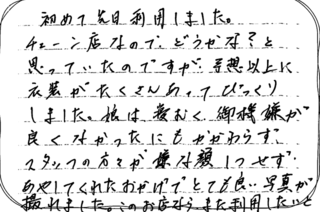 初めて先日利用しました。
チェーン店なので、どうかな?と
思っていたのですが、予想以上に
衣装がたくさんあってびっくり
しました。娘は眠く、御機嫌が
良くなかったにもかかわらず、
スタッフの方々が嫌な顔1つせず
あやしてくれたおかげでとても良い写真が
撮れました。このお店ならまた利用したいと